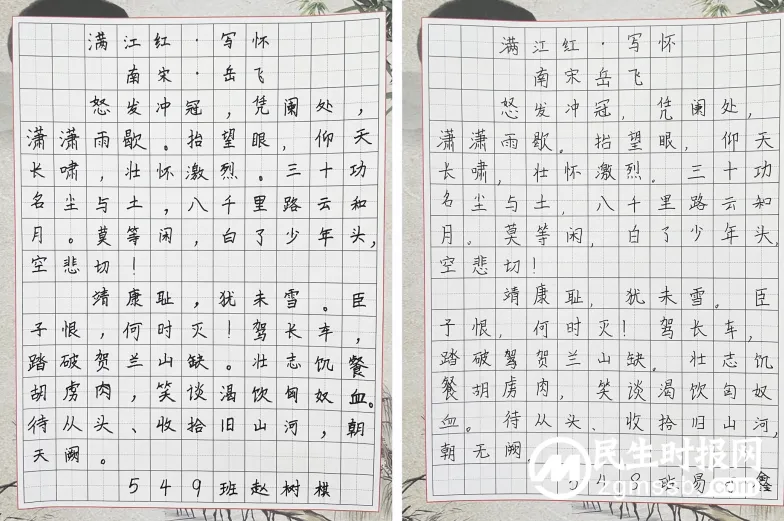 满江红·写怀
南宋·岳飞
怒发冲冠，凭阑处，
潇潇雨歇。抬望眼，仰天
长啸，壮怀激烈。三十功
名尘与土，八千里路云和
月。莫等闲，白了少年头，
空悲切！
靖康耻，犹未雪。臣
子恨，何时灭！驾长车，
踏破贺兰山缺。壮志饥餐
胡虏肉，笑谈渴饮匈奴血。
待从头、收拾旧山河，朝
天阙。
549班赵树棋
满江红·写怀
南宋岳飞
怒发冲冠，凭阑处，
潇潇雨歇。抬望眼，仰天
长啸，壮怀激烈。三十功
名尘与土，八千里路云和
月。莫等闲，白了少年头，
空悲切！
靖康耻，犹未雪。臣
子恨，何时灭！驾长车，
踏破驾贺兰山缺。壮志饥
餐胡虏肉，笑谈渴饮匈奴
血。待从头、收拾旧山河，
朝无阙。
班易鑫
民生时报网